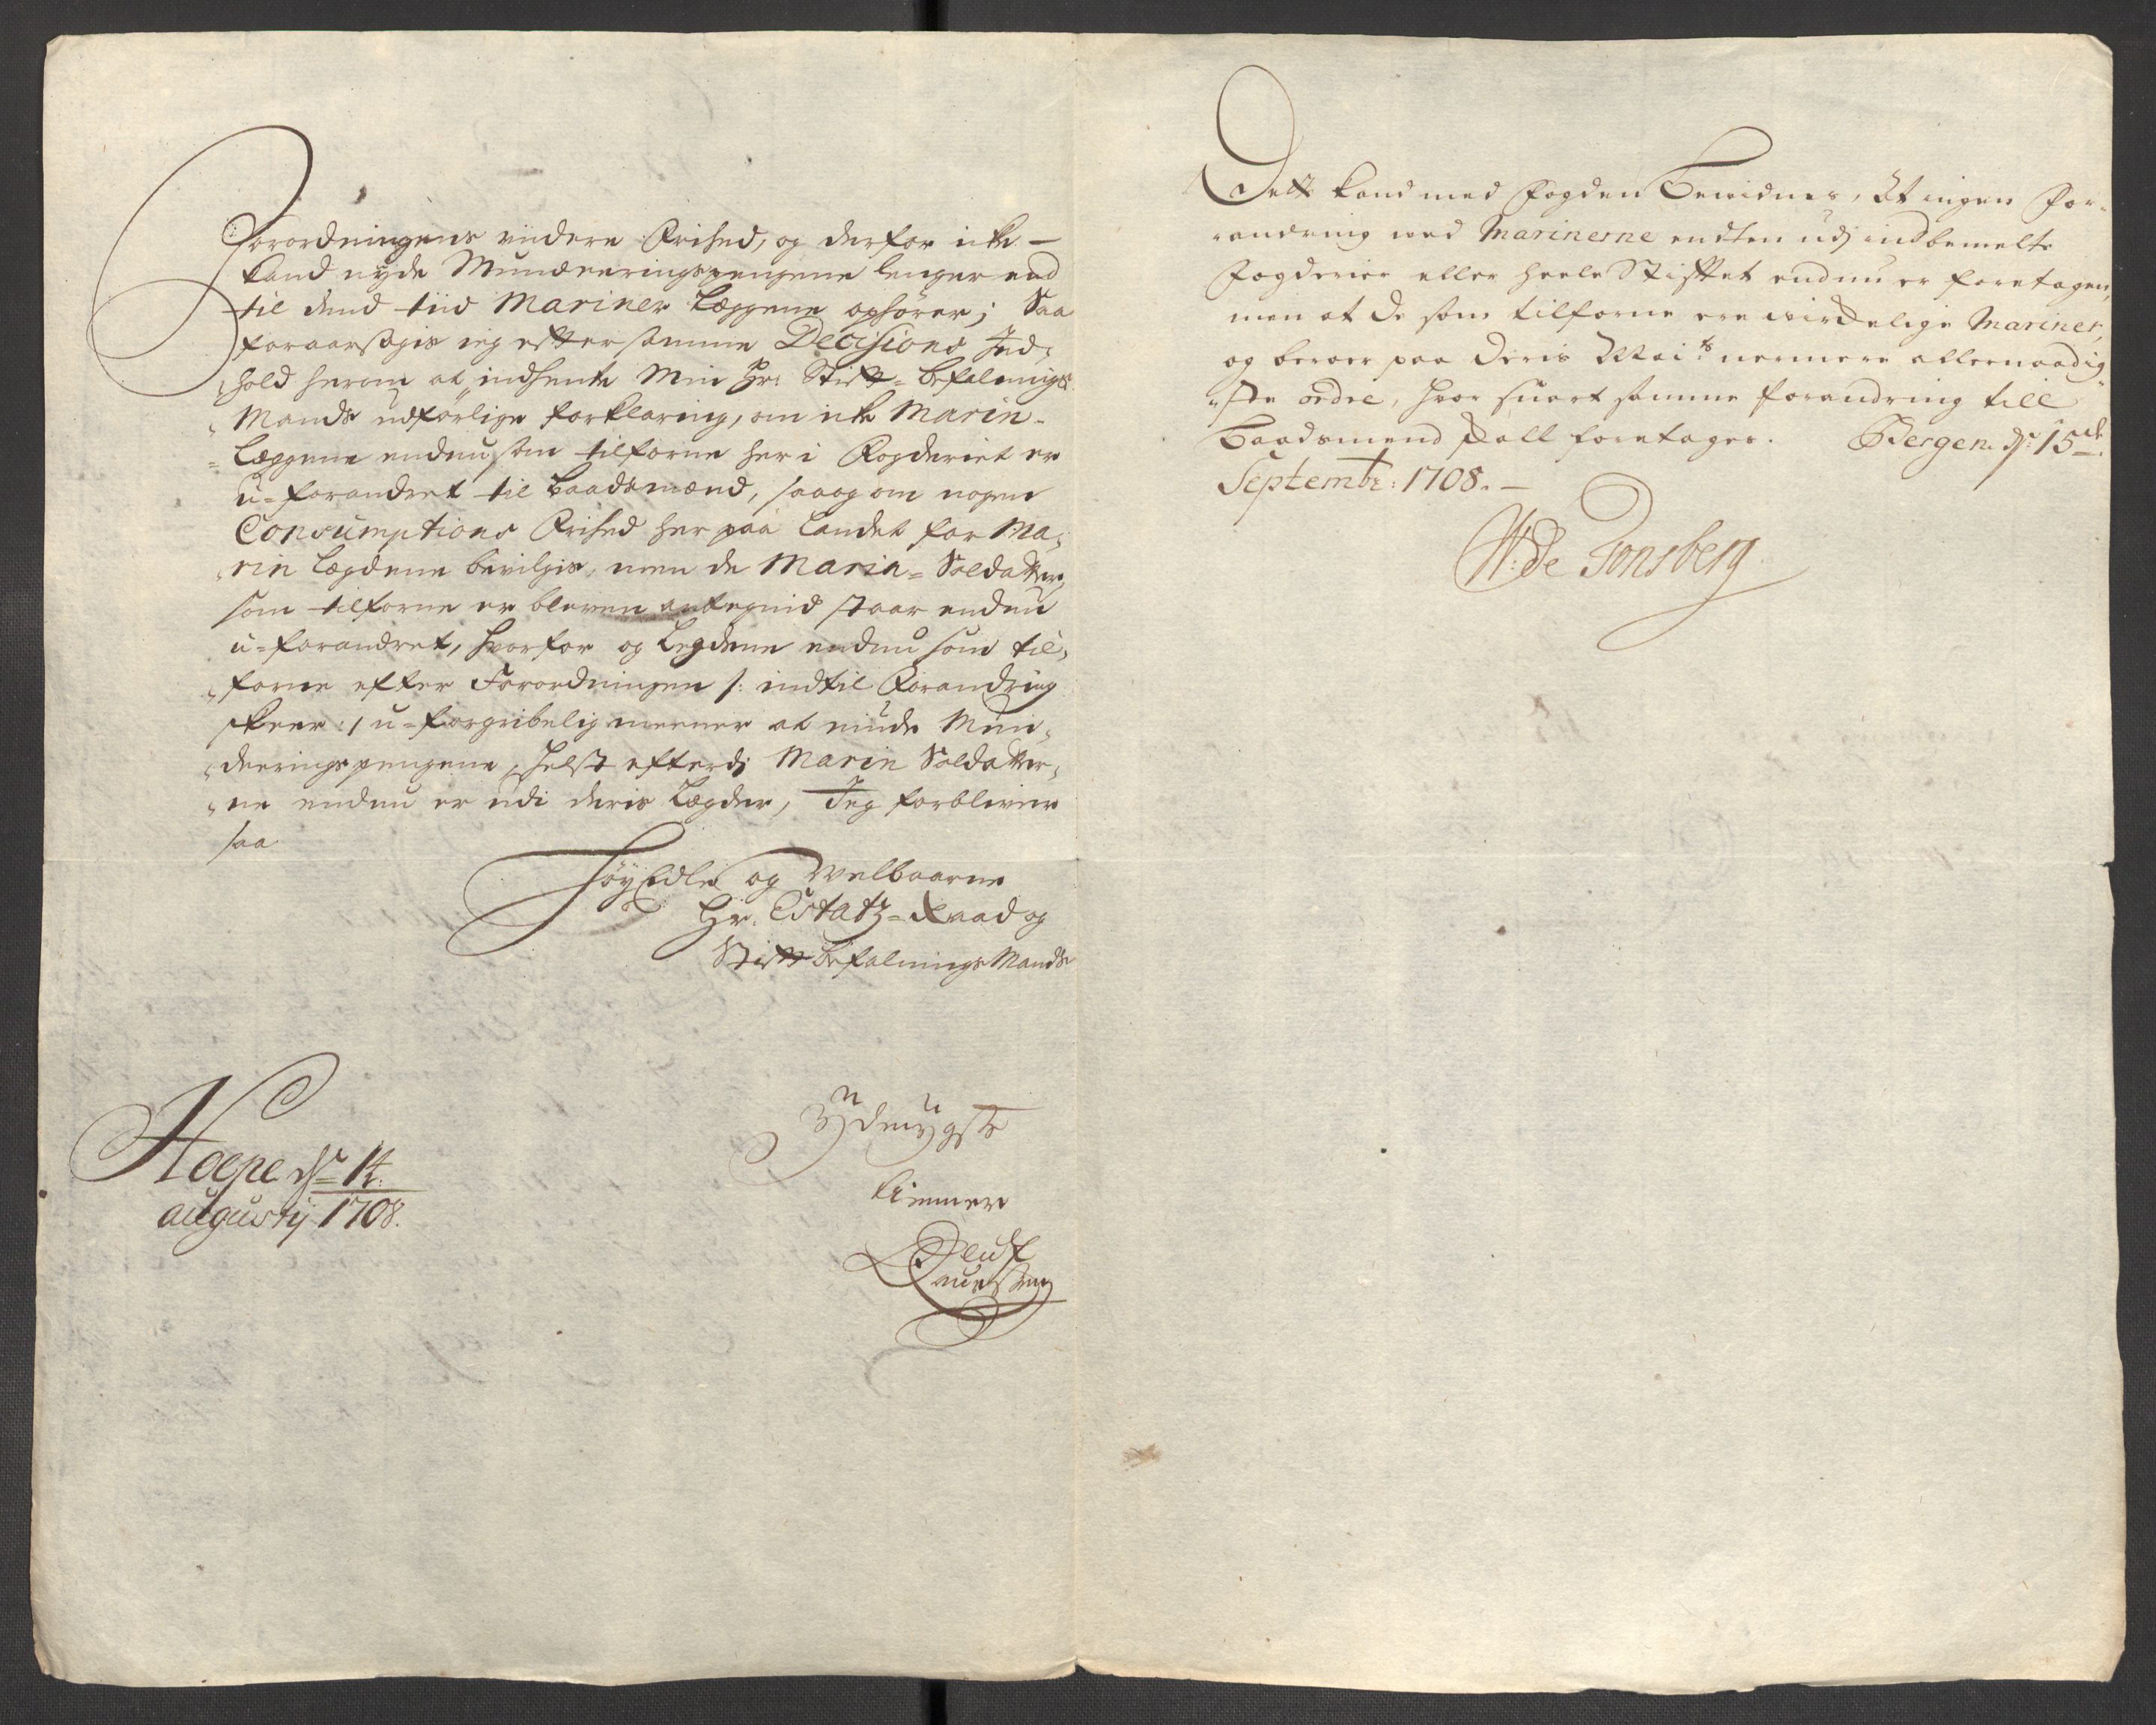 Forordningens videre Frihed, og derfor icke
kand nyde Munderingspengene lenger end
til dend tiid Mariner Leggene ophører; Saa
foraarsagis ieg efter samme Decisions Ind-
hold herom at indhente Min Hr: Stift-befalnings
Mands udførlige forklaring, om icke Marin-
Leggene endnu som tilforne her i Fogderiet er
u-forandret til Baadsmænd, saa og om nogen
Consumptions Frihed her paa Landet for Ma-
rin Legdene bevilgis, men de Marin-Soldatter
som tilforne er bleven antegnid staar endnu
u-forandret, hvorfor og Legdene endnu som til-
forne efter Forordningen /: indtil Forandring
skeer :/ u-forgribelig meener at niude Mun-
deringspengene, helst efterdj Marin Soldatter-
ne endnu er udi deris Legder, Jeg forbliver
saa
HøyEdle og Velbaarne
Hr. Estatz-Raad og
Stift befalnings Mands
Ydmygste
tienner
Hoepe d: 14.
augustij 1708.
Dett kand med Fogden Bevidnes, At ingen For-
andring med Marinerne endten udj indbemelte
Fogderier eller heele Stiftet endnu er foretagen,
men at de som tilforne ere virckelige Mariner,
og beroer paa Deris Maits nermere allernaadig-
ste ordre, hvor snart samme forandring till
Baadsmend skall foretages. Bergen d: 15de
Septembr: 1708.
W: de Tonsberg